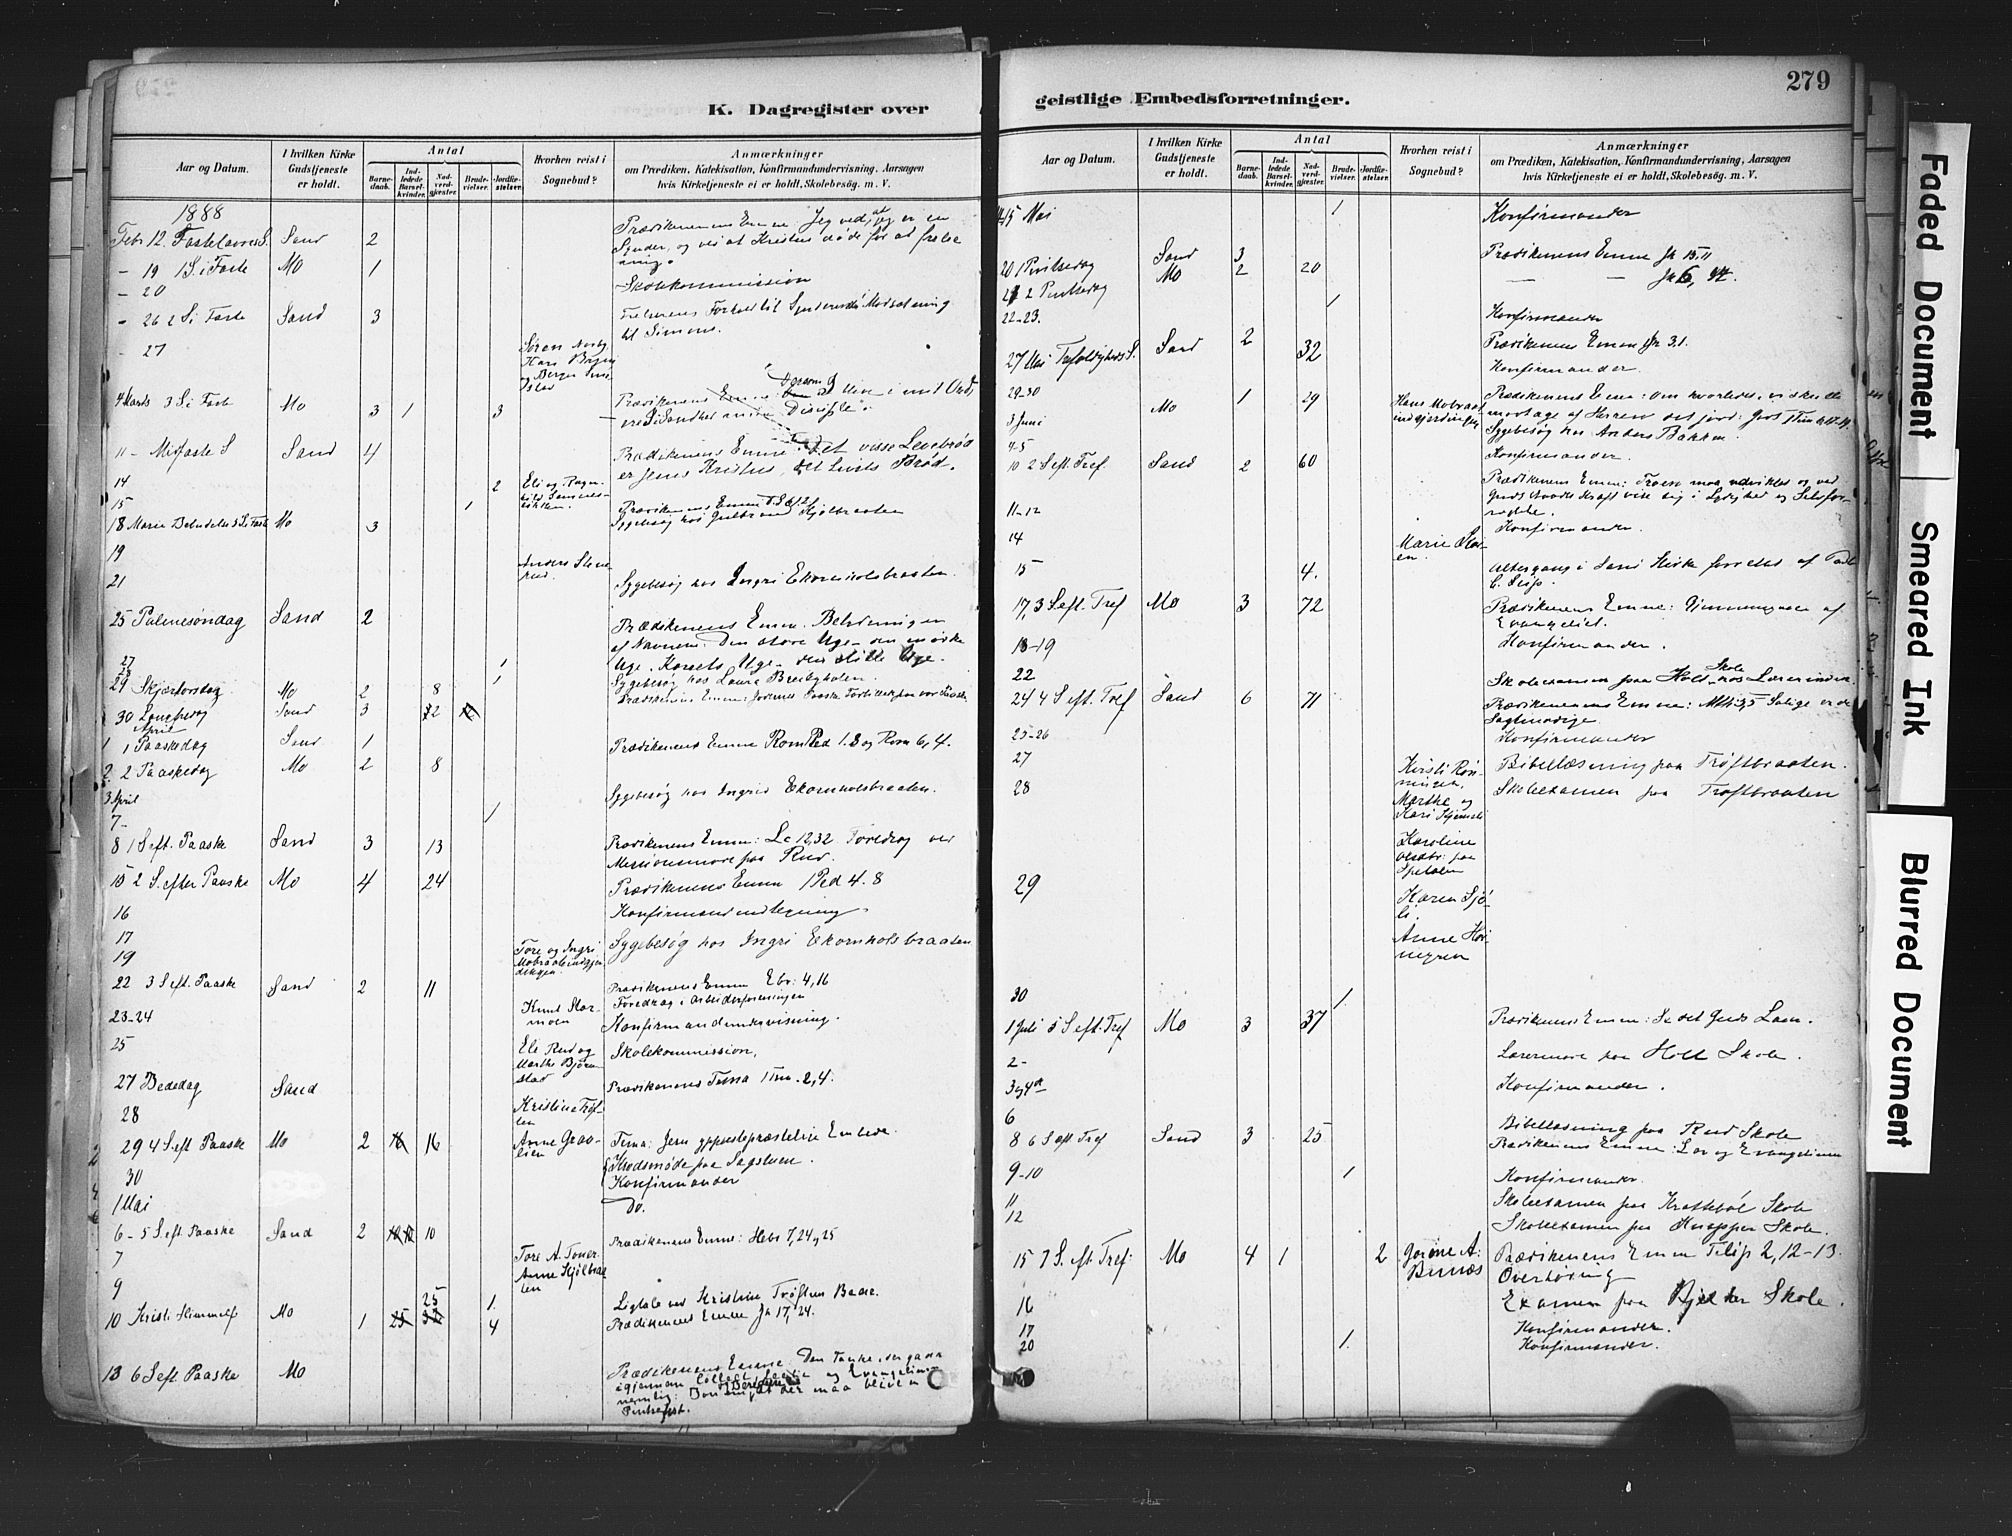 279
K. Dagregister over geistlige Embedsforretninger.
Aar og Datum.
I hvilken Kirke Gudstjeneste er holdt.
Antal
Barnedaab.
Indledede Barselkvinder.
Nadverdgjester.
Brudevielser.
Jordfæstelser.
Hvorhen reist i Sognebud?
Anmærkninger
om Prædiken, Katekisation, Konfirmandundervisning, Aarsagen
hvis Kirketjeneste ei er holdt, Skolebesøg. m. V.
1888
Febr 12. Fastelavns S. Sand 2 Prædikenens Emne Jeg ved, at jeg er en
Synder, og ved at Kristus døde for at frelse
mig.
- 19 1 S. i Faste Mo 1
- 20 Skolekommission
- 26 2 S. i Faste Sand 3 Frelserens Forhold til Synderinden Modsætning
til Simons.
- 27 Søren
4 Marts 3 S. i Faste Mo 3 1 3 Prædikenens Emne: Dersom I blive i mit Ord,
ere I Sandhed mine Disciple.
11 - Midfaste S Sand 4 Prædikenens Emne Det visse Levebrød
er Jesus Kristus, det Livets Brød.
14 2 Eli og Ragn-
hild
15 1
18 Marie Bebudelse 5 S. i Faste Mo 3 Prædikenens Emne
Sygebesøg hos Gulbrand Kjølbraaten
19
21 Anders Stene-
rud Sygebesøg hos Ingri Ekornholsbraaten.
25 Palmesøndag Sand 2 Prædikenens Emne. Betydningen
af Navnene: Den store Uge - den mørke
Uge - Korsets Uge - den stille Uge.
27 1
28 1 Sygebesøg hos Laura Breibyholen.
29 Skjærtorsdag Mo 2 8 Prædikenens Emne: Jødernes Paaske Forbillede paa vor Paaske
30 Langfredag Sand 3 12
April
1 1 Paaskedag Sand 1 Prædikenens Emne Rom 6, 4.
2 2 Paaskedag Mo 2 8
3 April Sygebesøg hos Ingrid Ekornholsbraaten.
7 - 1
8 1 S eft. Paaske Sand 3 13 Prædikenens Emne: Lc 12,32 Foredrag ved
Missionsmøde paa Rud.
15 2 S. efter Paaske Mo 4 24 Prædikenens Emne 1 Ped 4. 8
16 Konfirmandindtegning.
17 Sygebesøg hos Ingri Ekornholsbraaten
19 Tore og Ingri
22 3 S eft. Paaske Sand 2 11 Prædikenens Emne Ebr: 4,16
Foredrag i Arbeiderforeningen
23-24 Knut Stor-
moen Konfirmandundervisning.
25 Eli Rud og
Marthe Bjørn-
stad Skolekommission,
27 Bededag Sand Prædikenens Tema 1 Tim. 2,4.
28 Kristine Trøf-
ten
29 4 S eft Paaske Mo 2 16 Anne Graa-
lien Tema: Jesu ypperstepræstelige Embede.
30 Kredsmøde paa Sagstuen.
Konfirmander
1 Mai Do.
6 - 5 S eft. Paaske Sand 2 10 Prædikenens Emne: Hebr 7,24,25
7 Tore A.
9 Anne Kjølbraa-
ten
25 1. Ligtale ved Kristine Trøften Baare.
10 Kristi Himmelf Mo 1 4 Prædikenens Emne Jh 17,24.
13 6 S eft. Paaske Mo Prædikenens Emne Den Tanke, der gaar
igjennem Collect, Lectie og Evangelium
nemlig: Bøn
Pintsefest.
14-15 Mai 1 Konfirmander
20 1 Pintsedag Sand 3 Prædikenens Emne Jh 15, 11
21 2 Pintsedag Mo 2 20 — — Jh 6, 44.
22-23. 1 Konfirmander
27 Mai Trefoldigheds S. Sand 2 32 Prædikenens Emne Jh 3.1.
29-30 Konfirmander.
3 Juni Mo 1 29 Hans Mobraat- Prædikenens Emne: Om hvorledes vi skulle
modtage af Herren det jord: Gods
Sygebesøg hos Anders Bakken.
4-5 Konfirmander.
10 2 S eft. Tref. Sand 2 60 Prædikenens Emne: Troen maa udvikles og ved
Guds Naades Kraft vise sig i Lydighed og Selvfor-
nægtelse.
11-12 Konfirmander.
14 Marie
15 4. Altergang i Sand Kirke forrettet af
17, 3 S eft. Tref Mo 3 72 Prædikenens Emne: af
Evangeliet.
18-19 Konfirmander.
22 Skoleexamen paa Holt Skole hos Lærerinden
24 4 S eft. Tref Sand 6 71 Prædikenens Emne: Mth 5,5 Salige er de
Sagtmodige
25-26 Konfirmander
27 Kirsti Røn-
ningen, Bibellæsning paa Trøftbraaten.
28 Marthe og
Kari Skoleexamen paa Trøftbraaten
Karoline
29 Karen Sjø-
li
Anne
30 1.
1 Juli 5 S eft. Tref Mo 3 37 Prædikenens Emne: Se det Guds Lam.
2 - Lærermøde paa Holt Skole.
3 og 4de Konfirmander.
6 Bibellæsning paa Rud Skole
8 6 S eft. Tref Sand 3 25 Prædikenens Emne: Lov og Evangelium
9-10 1 Konfirmander.
11 Skoleexamen paa Krattebøl Skole
12 Skoleexamen paa Knapper Skole.
15 7 S. eft Tref: Mo 4 1 2 Gorine A. Prædikenens Emne Filip 2, 12-13.
Overhøring
16 Examen paa Skole.
17 Konfirmander.
20 1. Konfirmander.
Faded Document
Smeared Ink
Blurred Document